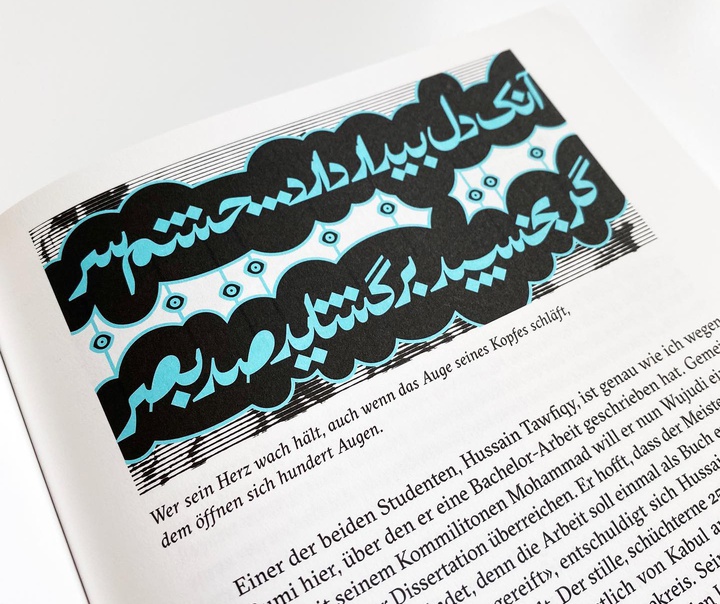 آنک دل بیدار دارد چشم سر
گر بخسپید برگشاید صد بصر
Wer sein Herz wach hält, auch wenn das Auge seines Kopfes schläft,
dem öffnen sich hundert Augen.
Einer der beiden Studenten, Hussain Tawfiqy, ist genau wie ich wegen
umi hier, über den er eine Bachelor-Arbeit geschrieben hat. Gemei
it seinem Kommilitonen Mohammad will er nun Wujudi ei
r Dissertation überreichen. Er hofft, dass der Meiste
det, denn die Arbeit soll einmal als Buch
gereift», entschuldigt sich Hussai
t. Der stille, schüchterne 25
tlich von Kabul a
kreis. Sein